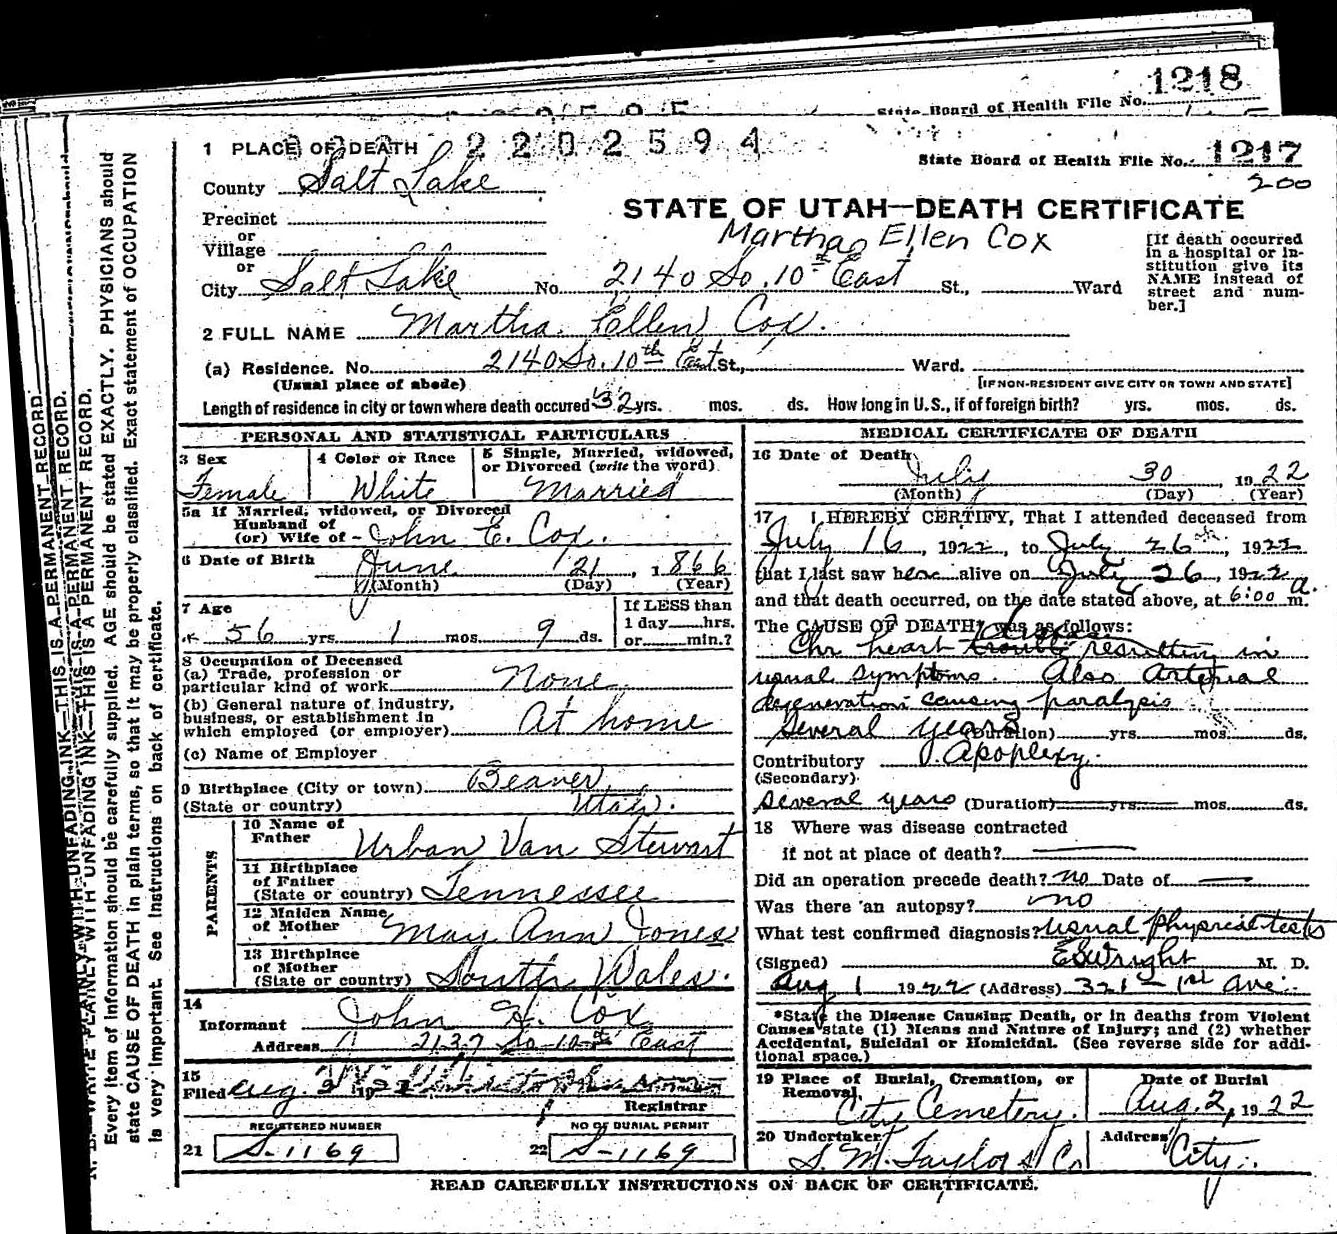 State Board of Health File No. 1218
1 PLACE OF DEATH 2202594
State Board of Health File No. 1217
200
County Salt Lake
STATE OF UTAH—DEATH CERTIFICATE
Precinct
or
Village
or
Martha Ellen Cox
[If death occurred in a hospital or institution give its NAME instead of street and number.]
City Salt Lake No. 2140 So. 10th East St., Ward
2 FULL NAME Martha Ellen Cox.
(a) Residence. No. 2140 So. 10th East St., Ward.
(Usual place of abode) [IF NON-RESIDENT GIVE CITY OR TOWN AND STATE]
Length of residence in city or town where death occured 32 yrs. mos. ds. How long in U.S., if of foreign birth? yrs. mos. ds.
PERSONAL AND STATISTICAL PARTICULARS
3 Sex 4 Color or Race 5 Single, Married, widowed, or Divorced (write the word)
Female White Married
5a If Married, widowed, or Divorced
Husband of
(or) Wife of - John E. Cox.
6 Date of Birth June 21, 1866
(Month) (Day) (Year)
7 Age If LESS than
1 day hrs.
56 yrs. 1 mos. 9 ds. or min.?
8 Occupation of Deceased
(a) Trade, profession or
particular kind of work None
(b) General nature of industry,
business, or establishment in
which employed (or employer) At home
(c) Name of Employer
9 Birthplace (City or town) Beaver
(State or country) Utah.
PARENTS
10 Name of
Father Urban Van Stewart
11 Birthplace
of Father
(State or country) Tennessee
12 Maiden Name
of Mother May Ann Jones
13 Birthplace
of Mother
(State or country) South Wales.
14
Informant John H. Cox
Address 2137 So 10th East
15
Filed Aug. 2 192
Registrar
REGISTERED NUMBER NO OF BURIAL PERMIT
21 S-1169 22 S-1169
MEDICAL CERTIFICATE OF DEATH
16 Date of Death July 30, 1922
(Month) (Day) (Year)
17 I HEREBY CERTIFY, That I attended deceased from
July 16, 1922, to July 26th, 1922
that I last saw her alive on July 26, 1922
and that death occurred, on the date stated above, at 6:00 a m.
The CAUSE OF DEATH* was as follows:
disease
Chr heart trouble resulting in
usual symptoms. Also Arterial
degeneration causing paralysis
Several years (Duration) yrs. mos. ds.
Contributory Apoplexy.
(Secondary)
Several years (Duration) yrs. mos. ds.
18 Where was disease contracted
if not at place of death?
Did an operation precede death? no Date of
Was there an autopsy? no
What test confirmed diagnosis? usual physical tests
(Signed) E S Wright M. D.
Aug 1 1922 (Address) 321 1st Ave.
*State the Disease Causing Death, or in deaths from Violent
Causes state (1) Means and Nature of Injury; and (2) whether
Accidental, Suicidal or Homicidal. (See reverse side for addi-
tional space.)
19 Place of Burial, Cremation, or Date of Burial
Removal.
City Cemetery. Aug. 2, 1922
20 Undertaker Address
S. M. Taylor & Co City.
READ CAREFULLY INSTRUCTIONS ON BACK OF CERTIFICATE.
THIS IS A PERMANENT RECORD.
N. B.—WRITE PLAINLY WITH UNFADING INK—THIS IS A PERMANENT RECORD.
Every item of information should be carefully supplied. AGE should be stated EXACTLY. PHYSICIANS should
state CAUSE OF DEATH in plain terms, so that it may be properly classified. Exact statement of OCCUPATION
is very important. See instructions on back of certificate.